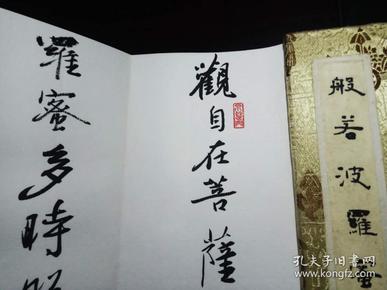 觀自在菩薩
羅蜜多時照
般若波羅蜜
孔夫子旧书网